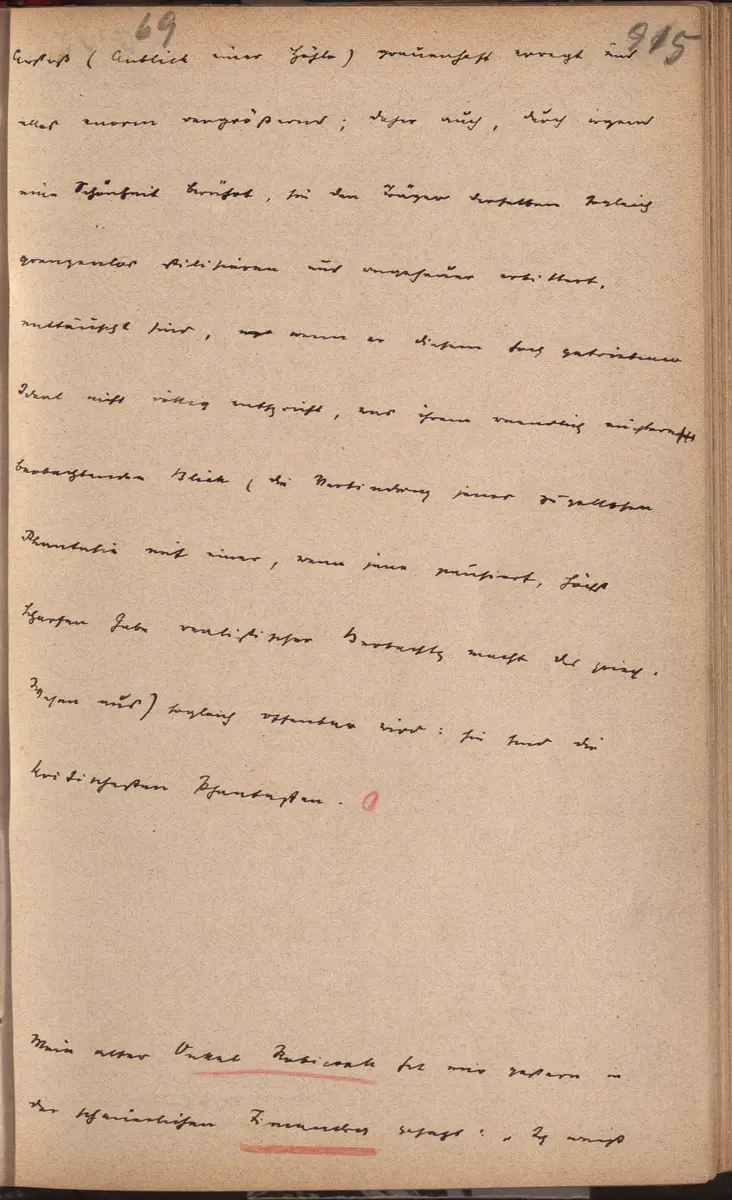 69
915
Anstoß (Anblick einer Höhle) grauenhaft erregt und
alles enorm vergrößernd; daher auch, durch irgend
eine Schönheit berührt, sie den Träger derselben sogleich
grenzenlos stilisieren und ungeheuer erbittert,
enttäuscht sind, wenn er diesem hoch getriebenen
Ideal nicht völlig entspricht, was ihrem unendlich nüchternen
beobachtenden Blick (die Verbindung jener zügellosen
Phantasie mit einer, wenn jene pausiert, höchst
scharfen Gabe realistischer Beobachtg macht das griech.
Wesen aus) sogleich offenbar wird: sie sind die
kritischesten Phantasten.
Mein alter Onkel hat mir gestern in
der schauerlichen gesagt: „Ich weiß